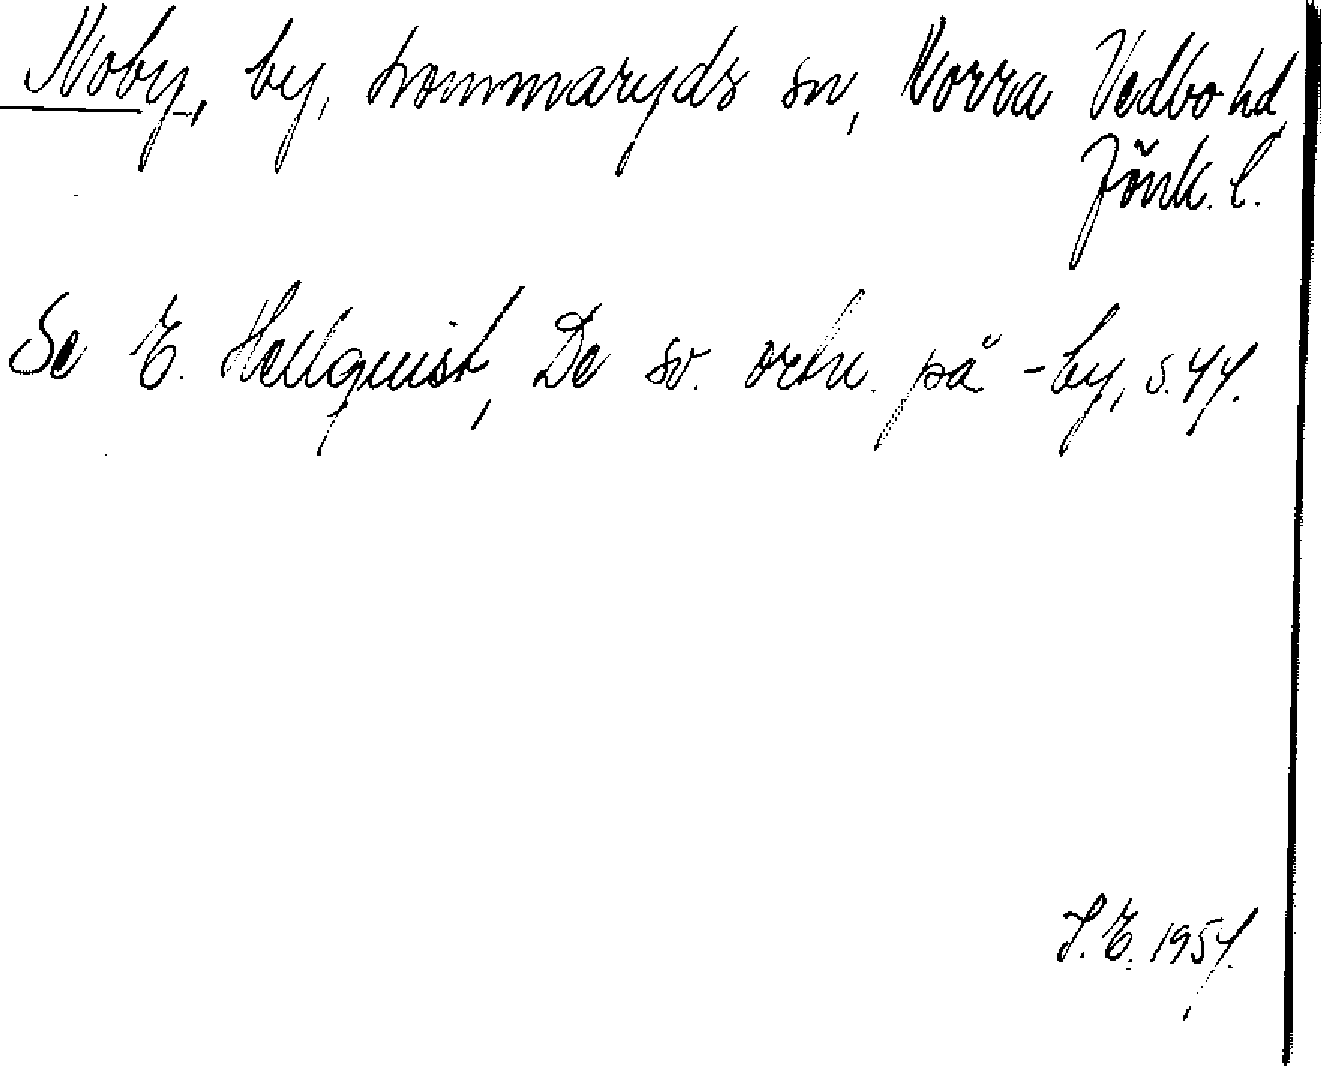 Noby, by, Lommaryds sn, Norra Vedbo hd,
Jönk. l.
Se E. Hellquist, De sv. ortn. på -by, s. 44.
I. E. 1954.